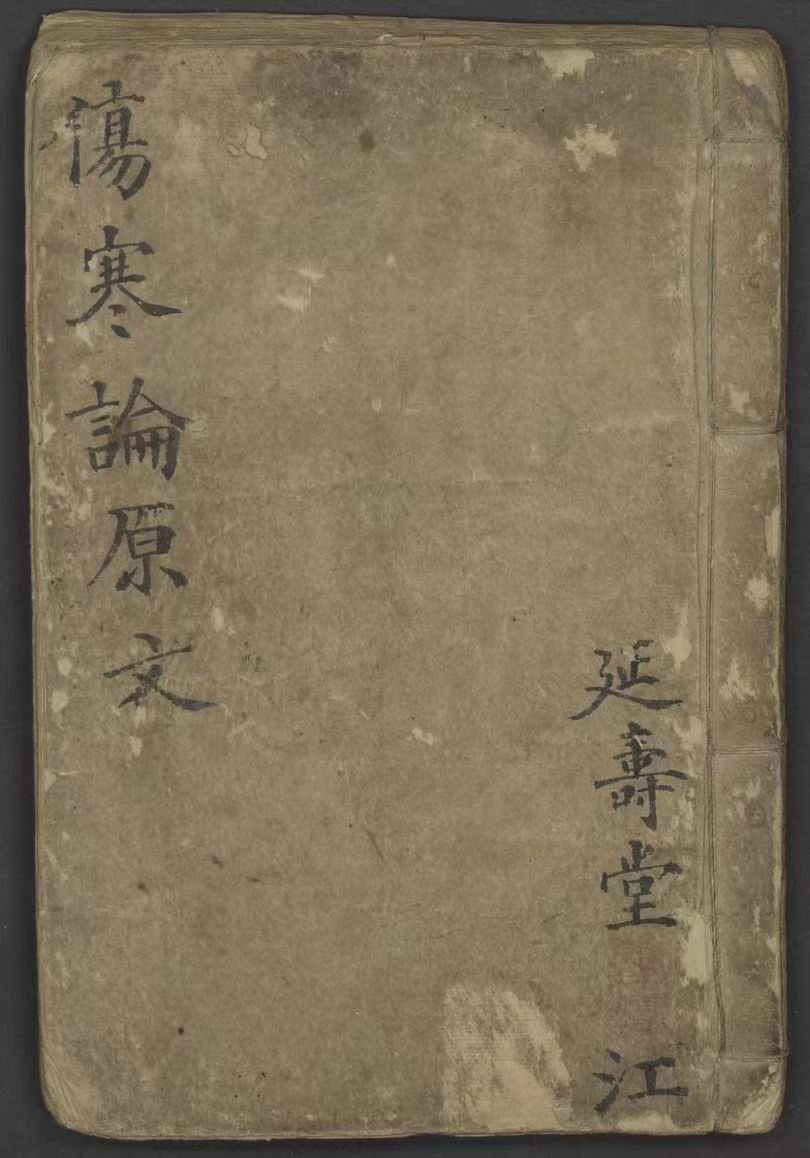 延壽堂 江
傷寒論原文